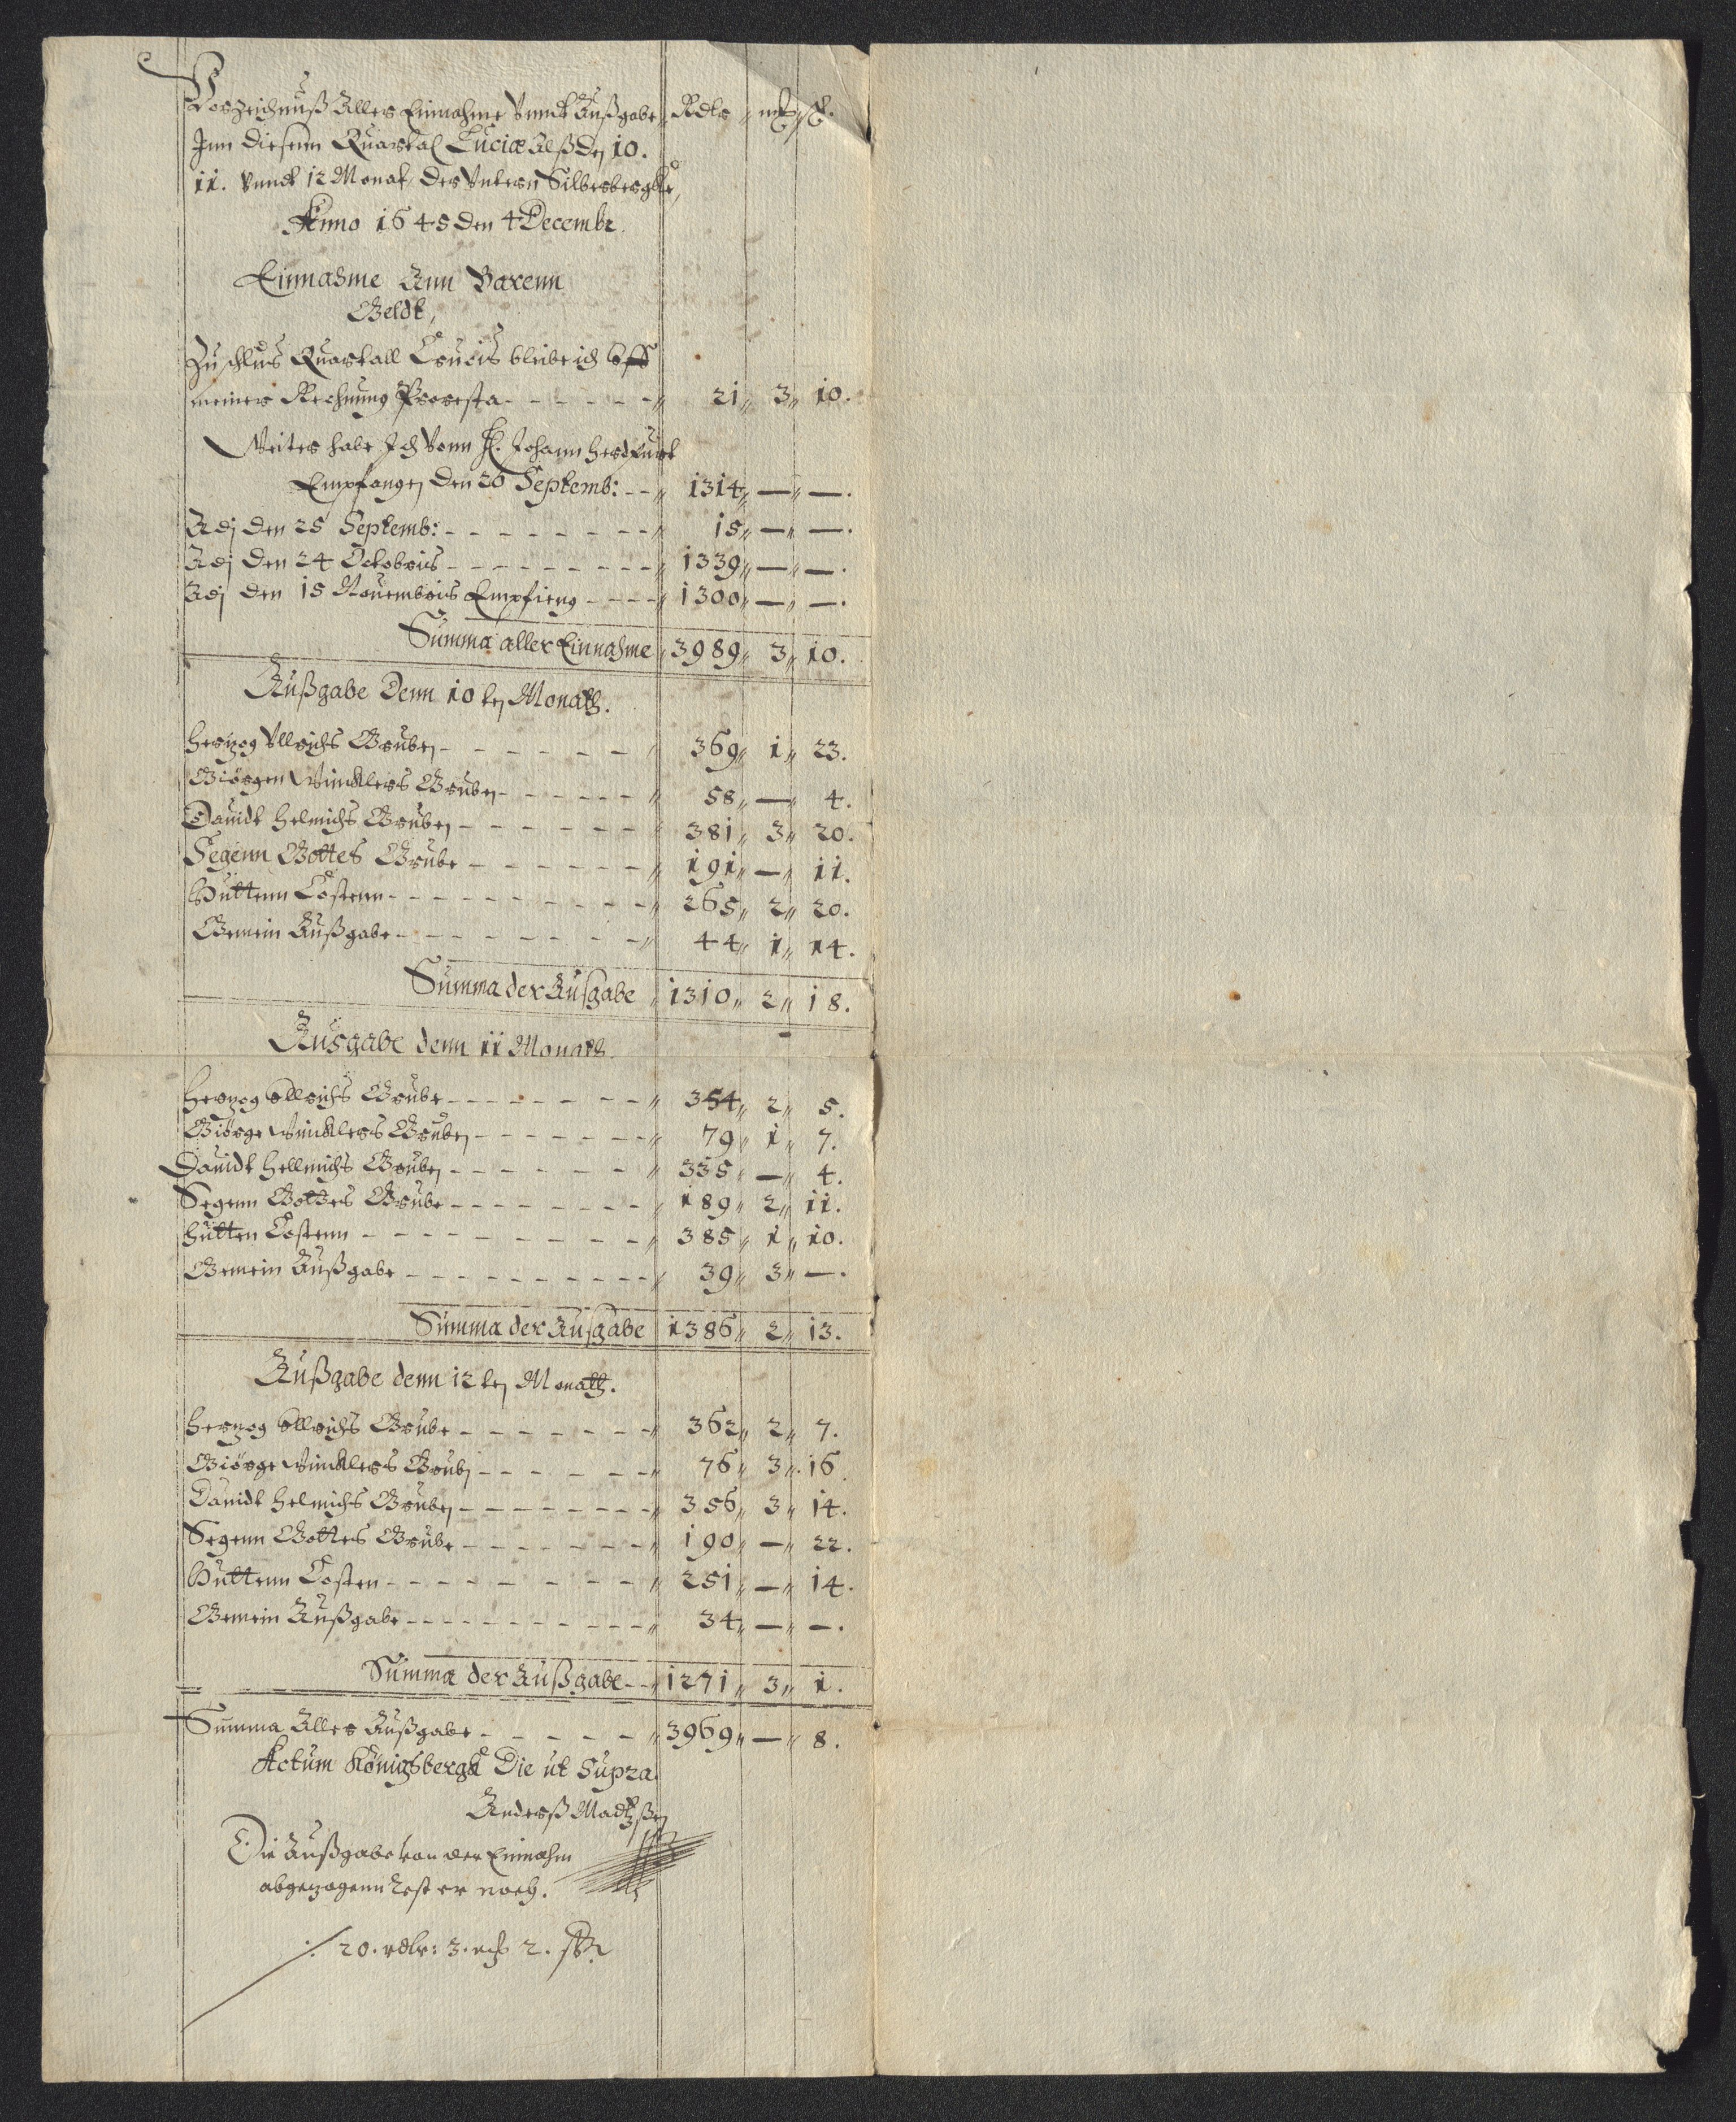 Verzeichnuß Aller Einnahme Vnndt Außgabe, Rdlr mk ß.
Inn diesenn Quartal Luciæ Alß den 10.
11. Vnndt 12 Monat, Der Vntern Silberbergke,
Anno 1645 den 4 Decembr.
Einnahme Ann Barenn
Geldt,
Zu schlus Quartall Crucis bleibe ich Vff
meiner Rechnung Pro resta - - - - - - 21 3 10.
Weiter habe Ich Vonn H. Johann Herdfurt
Empfangen Den 20 Septemb: - - 1314 — —.
Adj Den 25 Septemb: - - - - - - - - 15 — —.
Adj Den 24 Octobris - - - - - - - - - 1339 — —.
Adj den 15 Nouembris Empfieng - - - - 1300 — —.
Summa aller Einnahme 3989 3 10.
Außgabe Denn 10 ten Monath.
Hertzog Vllrichs Gruben - - - - - - 369 1 23.
Giörgen Wincklers Gruben - - - - - - 58 — 4.
Dauidt Helmichs Gruben - - - - - - 381 3 20.
Segenn Gottes Grube - - - - - - - 191 — 11.
Hüttenn Costenn - - - - - - - - - - 265 2 20.
Gemein Außgabe - - - - - - - - 44 1 14.
Summa der Ausgabe 1310 2 18.
Ausgabe denn 11 Monath.
Hertzog Vllrichs Grube - - - - - - - - 354 2 5.
Giörge Wincklers Gruben - - - - - - - 79 1 7.
Dauidt Hellmichs Gruben - - - - - - 335 — 4.
Segenn Gottes Grube - - - - - - - - 189 2 11.
Hütten Costenn - - - - - - - - - - 385 1 10.
Gemein Außgabe - - - - - - - - - - - 39 3 —.
Summa der Ausgabe 1386 2 13.
Außgabe denn 12 ten Monath.
Hertzog Vllrichs Grube - - - - - - - - 362 2 7.
Giörge Wincklers Grubn - - - - - - - 76 3 16
Dauidt Helmichs Gruben - - - - - - - - 356 3 14.
Segenn Gottes Grube - - - - - - - - 190 — 22.
Hüttenn Costen - - - - - - - - - 251 — 14.
Gemein Außgabe - - - - - - - - - - - 34 — —.
Summa der Außgabe - - 1271 3 1.
Summa Aller Außgabe - - - - - - 3969 — 8.
Actum Königsbergk Die ut Supra
Anderß Madtzßen
Die Außgabe von der Einnahm
abgezogenn rest er noch.
./. 20. rdlr: 3. 2. ß